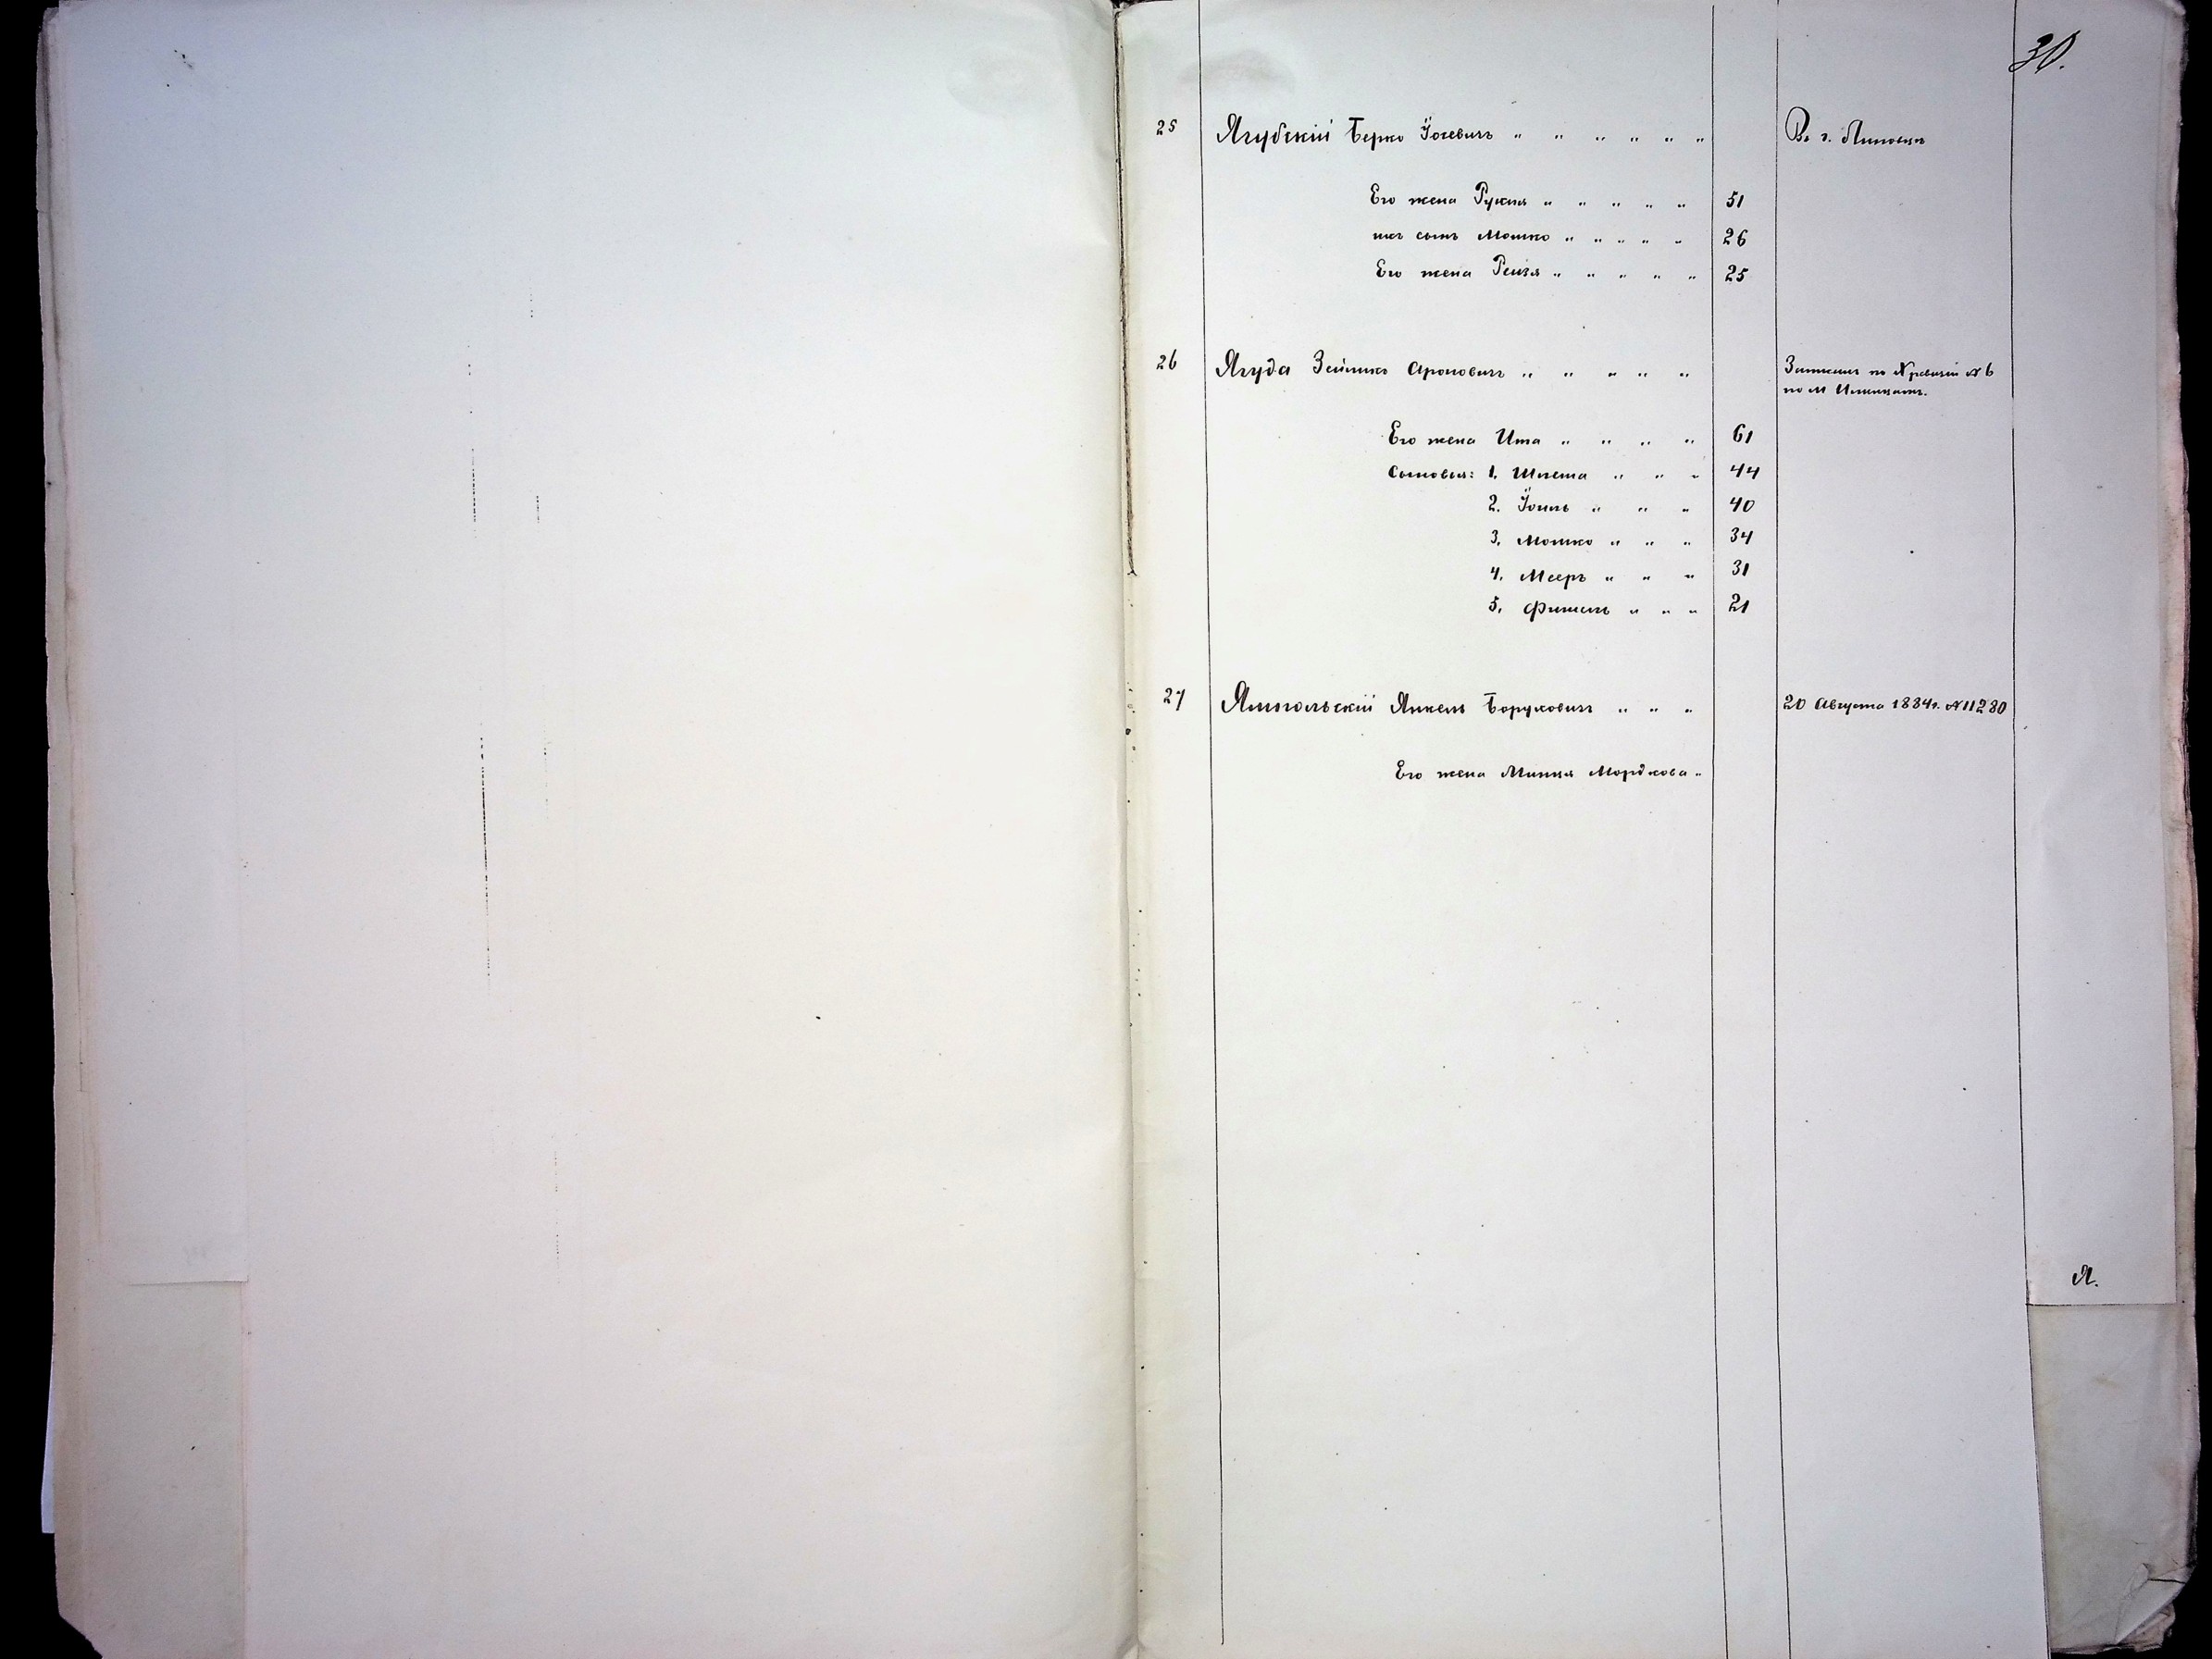 30.
25 Ягубскій Берко Іосевичъ " " " " " " Въ г. Липовцѣ
Его жена Рухля " " " " " 51
ихъ сынъ Мошко " " " " " 26
Его жена Рейзя " " " " " 25
26 Ягуда Зейликъ Ароновичъ " " " " " Записанъ по X ревизіи № 6
по м Ильинцамъ.
Его жена Ита " " " " 61
Сыновья: 1. Шлема " " " 44
2. Іоиль " " " 40
3. Мошко " " " 34
4. Мееръ " " " 31
5. Фишель " " " 21
27 Ямпольскій Янкель Боруховичъ " " " 20 Августа 1884г. № 11280
Его жена Минця Мордкова "
Я.